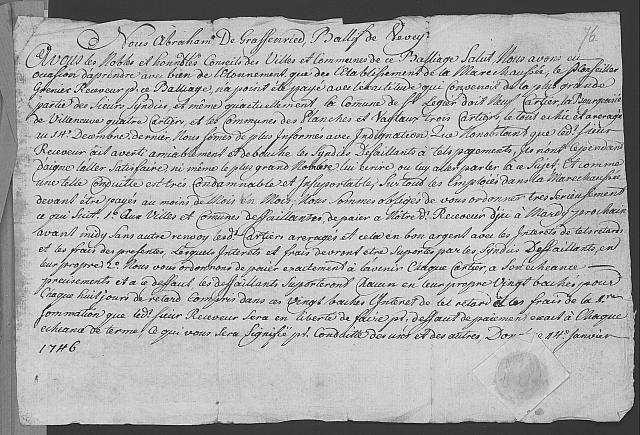 76
Nous Abraham De Graffenried, Ballif de Vevey
A vous les Nobles et honnêtes Conseils des Villes et Communes de ce Balliage Salut, Nous avons eu
ocasion d'aprendre avec bien de l'Etonnement, que des l'Etablissement de la Marechaussée, le
Grenier Receveur pr. ce Balliage, na point été payé avec l'exactitude qui Convenoit de la plus grande
partie des Sieurs Syndics et même qu'actuellement la Comune de St. Legier doit Neuf Cartiers, la Bourgeoisie
de Villeneuve quatre Cartiers, et les Communes des Planches et Vaÿtaux trois Cartiers, le tout échû et areragé
au 14e. Decembre dernier, Nous somes de plus Informés avec Indignation que Nonobstant que led. Sieur
Receveur ait averti amiablement et de bouche les Syndics Defaillants à tels payements, ils nont cependant
daigné l'aller Satisfaire ni même le plus grand Nombre lui ecrire ou luy aler parler à ce Sujet, Et comme
une telle Conduitte est trés Condamnable et Insuportable, Sur tout les Employés dans la Marechaussée
devant être payés au moins de Mois en Mois, Nous somes obligés de vous ordonner trés Serieusement
ce qui Suit. 1°. Que Villes et Comunes deffaillantes, de paier à Nôtre dt. Receveur d'jci à Mardy prochain
avant midy Sans autre renvoy les d. Cartiers areragés et cela en bon argent avec les Interets de tels retards
et les frais des presentes, Lesquels Interets et frais devront être Suportés par les Syndics Deffaillants, en
leur propre. 2°. Nous vous ordonnons de paier exactement à l'avenir Chaque Cartier, a Son écheance
precisement et a ce deffaut, les deffaillants Suporteront chacun en leur propre Vingt baches pour
Chaque huit jours de retard Compris dans ces Vingt baches l'Interet de tel retard et les frais de la 1re.
sommation que led. Sieur Receveur Sera en liberté de faire pr. deffaut de paiement exact à Chaque
echeance de terme; Ce qui vous Sera Signifié pr. Conduitte des uns et des autres Don ce 14e. Janvier
1746